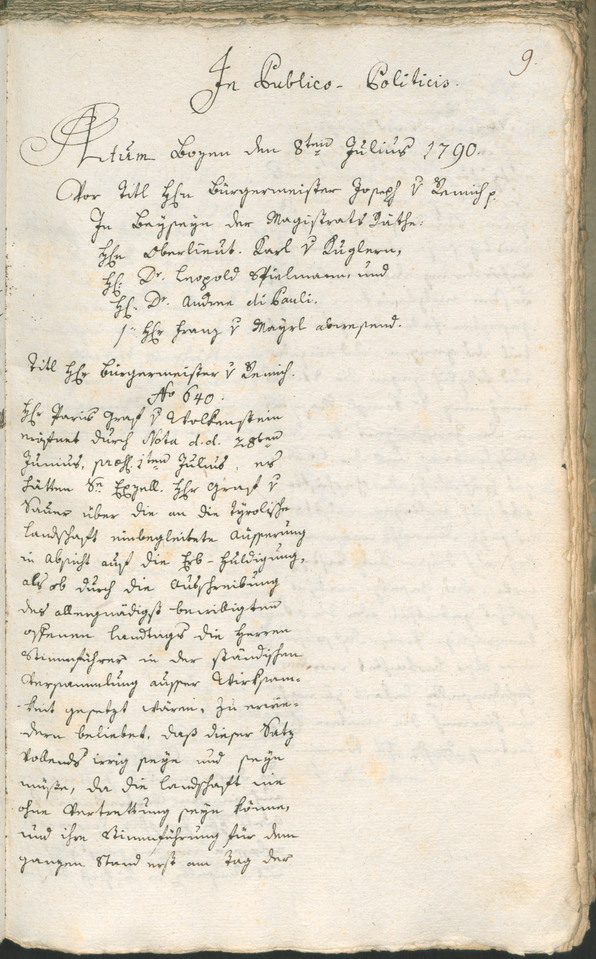 9.
In Publico-Politicis.
Actum Bozen den 8ten Julius 1790.
Vor Titl Hhn Bürgermeister Joseph v Remich p.
In Beyseyn der Magistrats Räthe:
Hhn Oberlieut. Karl v Kuglern,
Hh: Dr. Leopold Spielmann, und
Hh. Dr. Andree di Pauli.
Hhr Franz v Mayrl abwesend.
Titl Hhr Bürgermeister v Remich.
No 640.
Hhr Paris Graf v Wolkenstein
eröfnet durch Nota d.d. 28ten
Junius, 1ten Julius, es
hätten Se Exzell. Hhr Graf v
Sauer über die an die Tyrolische
Landschaft einbegleitete Äusserung
in Absicht auf die Erb-Huldigung,
als ob durch die Ausschreibung
des allergnädigst bewilligten
offenen Landtags die Herren
Stimmführer in der ständischen
Versammlung ausser Wirksam-
keit gesetzt wären, zu erwie-
dern beliebet, daß dieser Satz
vollends irrig seye und seyn
müße, da die Landschaft nie
ohne Vertrettung seyn könne,
und ihre Stimmführung für den
ganzen Stand erst am Tag der